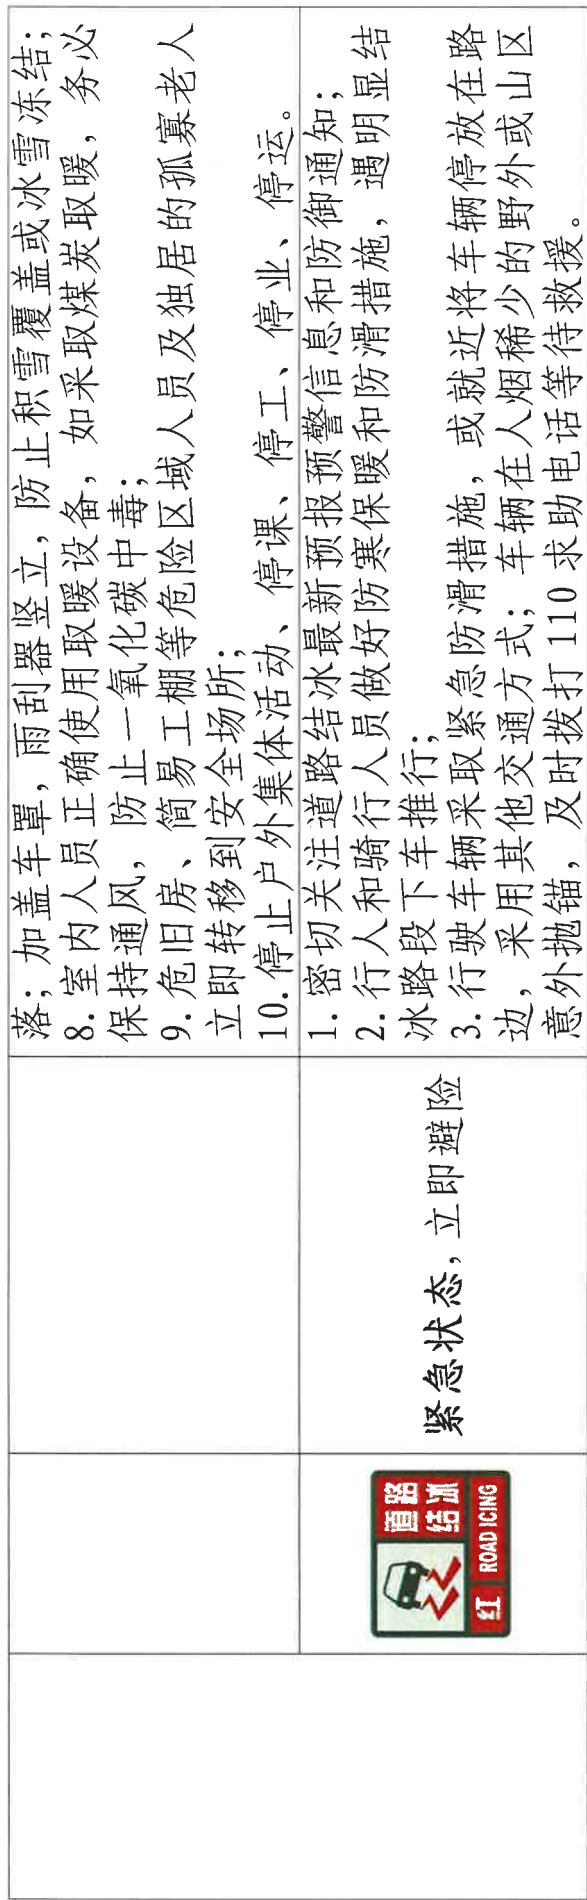 落；加盖车罩，雨刮器竖立，防止积雪覆盖或冰雪冻结；
8. 室内人员正确使用取暖设备，如采取煤炭取暖，务必
保持通风，防止一氧化碳中毒；
9. 危旧房、简易工棚等危险区域人员及独居的孤寡老人
立即转移到安全场所；
10. 停止户外集体活动、停课、停工、停业、停运。
道路
结冰
红 ROAD ICING
紧急状态，立即避险
1. 密切关注道路结冰最新预报预警信息和防御通知；
2. 行人和骑行人员做好防寒保暖和防滑措施，遇明显结
冰路段下车推行；
3. 行驶车辆采取紧急防滑措施，或就近将车辆停放在路
边，采用其他交通方式；车辆在人烟稀少的野外或山区
意外抛锚，及时拨打 110 求助电话等待救援。